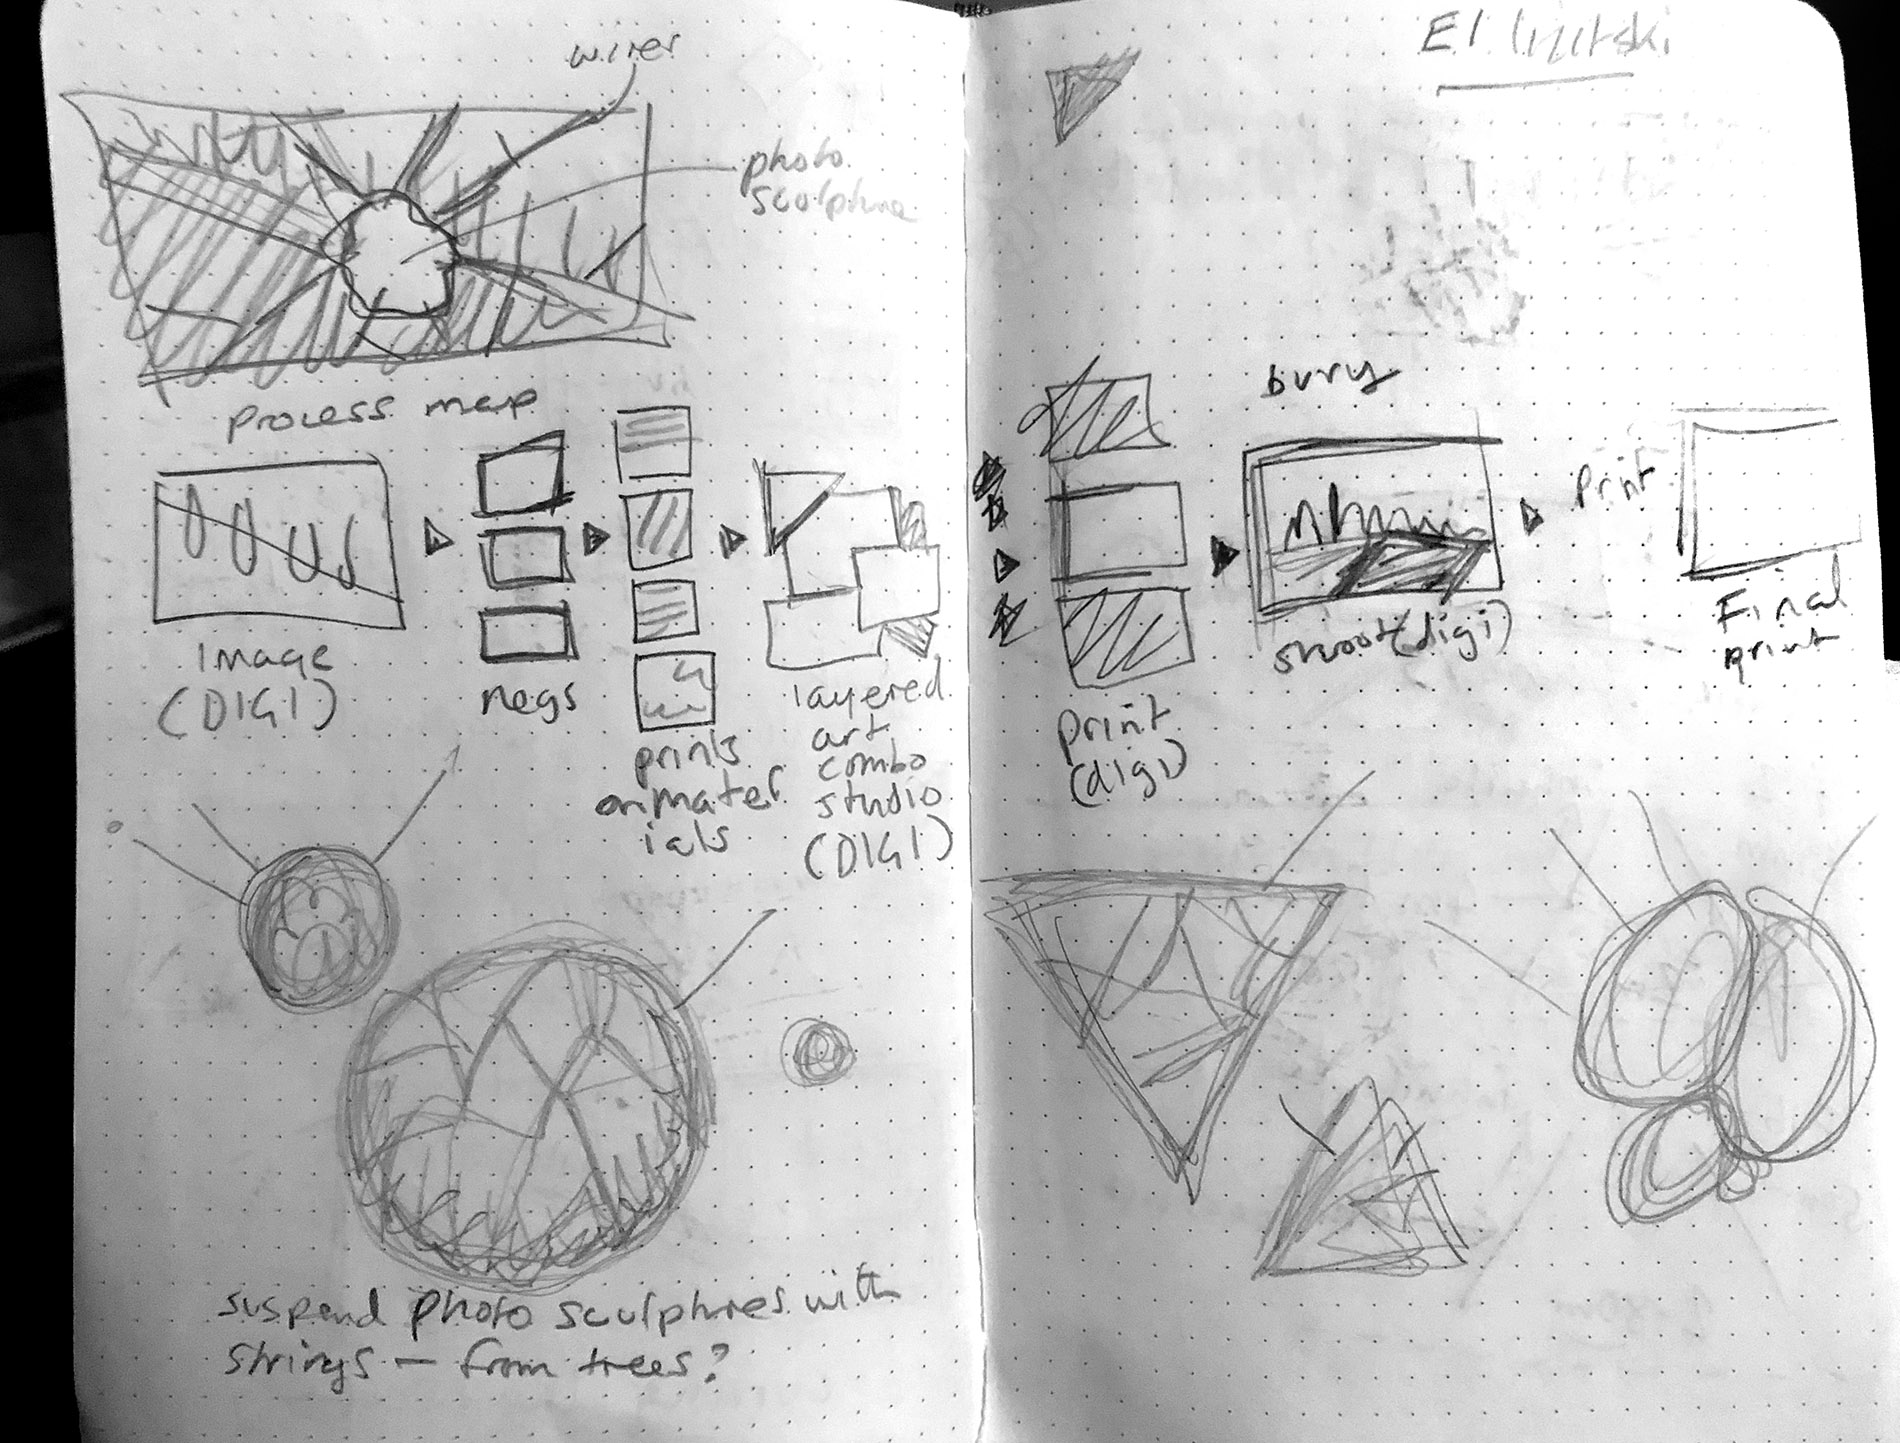 wires
photo
sculpture
process map
image
(DIGI)
negs
prints
on mater
ials
layered
art
combo
studio
(DIGI)
suspend photo sculptures with
strings — from trees?
El lizitski
bury
print
(digi)
shoot (digi)
Print
Final
print